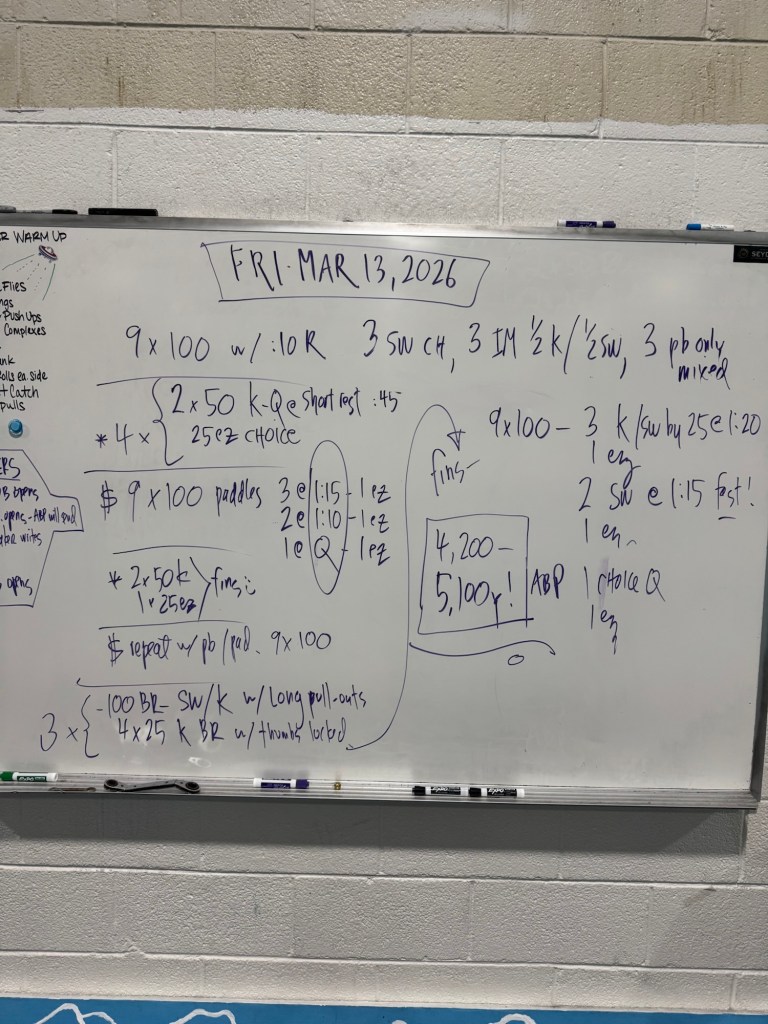 WARM UP
Flies
Push Ups
Complexes
ea. side
Catch
FRI. MAR 13, 2026
9 x 100 w/ :10 R 3 SW CH, 3 IM 1/2 K/ 1/2 SW, 3 pb only
mixed
* 4 x { 2 x 50 K-Q @ short rest :45
25 ez CHOICE
$ 9 x 100 paddles 3 @ 1:15 - 1 ez
2 @ 1:10 - 1 ez
1 @ Q - 1 ez
* 2 x 50 k
1 x 25 ez } fins
$ repeat w/ pb/pad. 9 x 100
3 x { -100 BR- SW/K w/ Long pull-outs
4 x 25 K BR w/ thumbs locked
fins-
9x100 - 3 K/SW by 25 @ 1:20
1 ez
2 SW @ 1:15 fast!
1 ez
1 CHOICE Q
1 ez
4,200 -
5,100y! ABP
opens
opens - ABP will
writes
opens
EXPO
EXPO